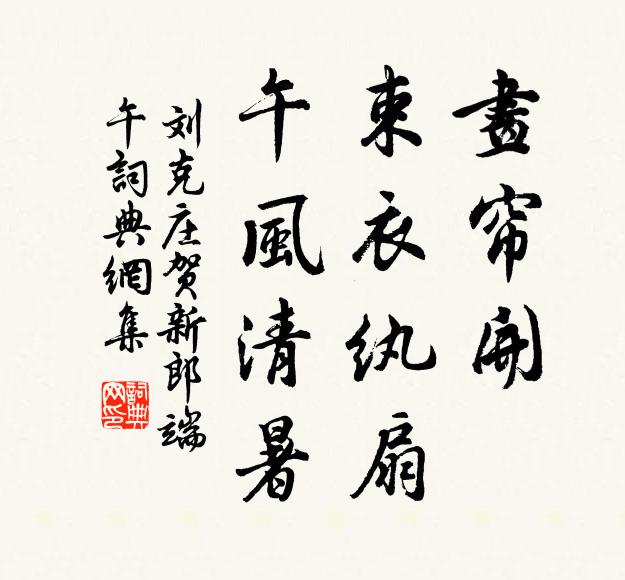 畫帘開
束衣紈扇
午風清暑
刘克庄贺新郎端
午詞典網集
詞典
网印